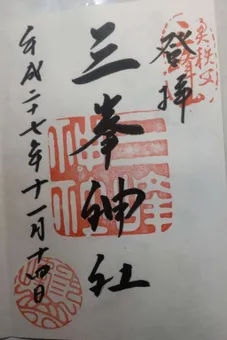 奥秩父
登拝
三峯神社
平成二十七年十一月十四日